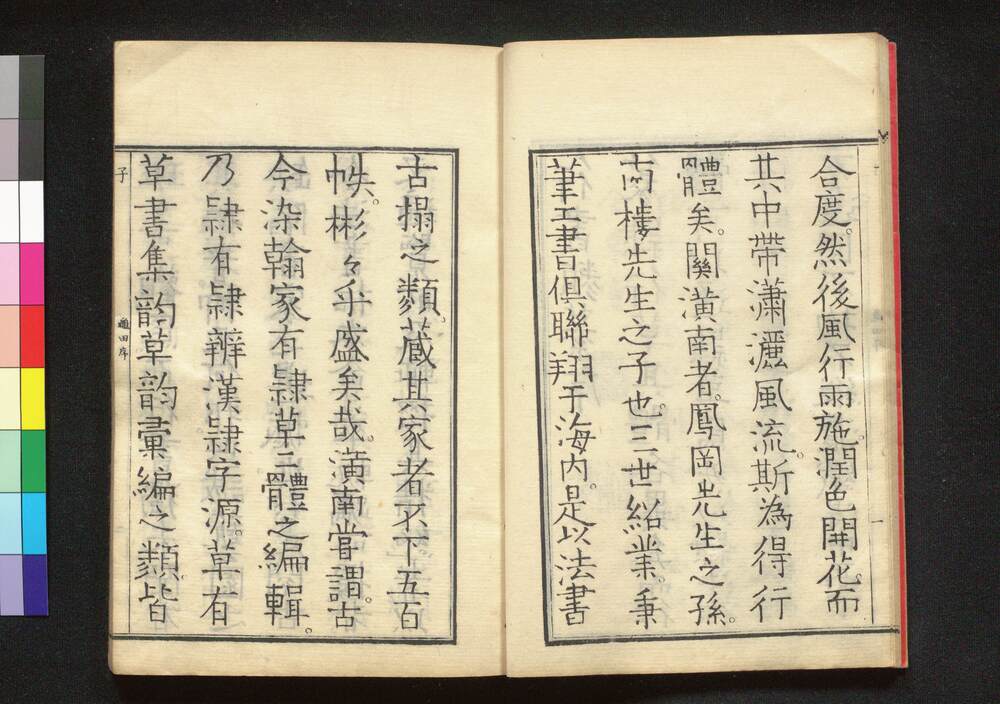 合度。然後風行雨施。潤色開花而
其中帶瀟灑風流斯為得行
體矣。關潢南者。鳳岡先生之孫。
南樓先生之子也。三世紹業。秉
筆工書俱聯翔于海內。是以法書
古搨之類。蔵其家者不下五百
帙。彬々乎盛矣哉。潢南嘗謂。古
今染翰家有隷草二體之編輯。
乃隷有隷辨漢隷字源。草有
草書集韵草韵彙編之類。皆
子
龜田序
一